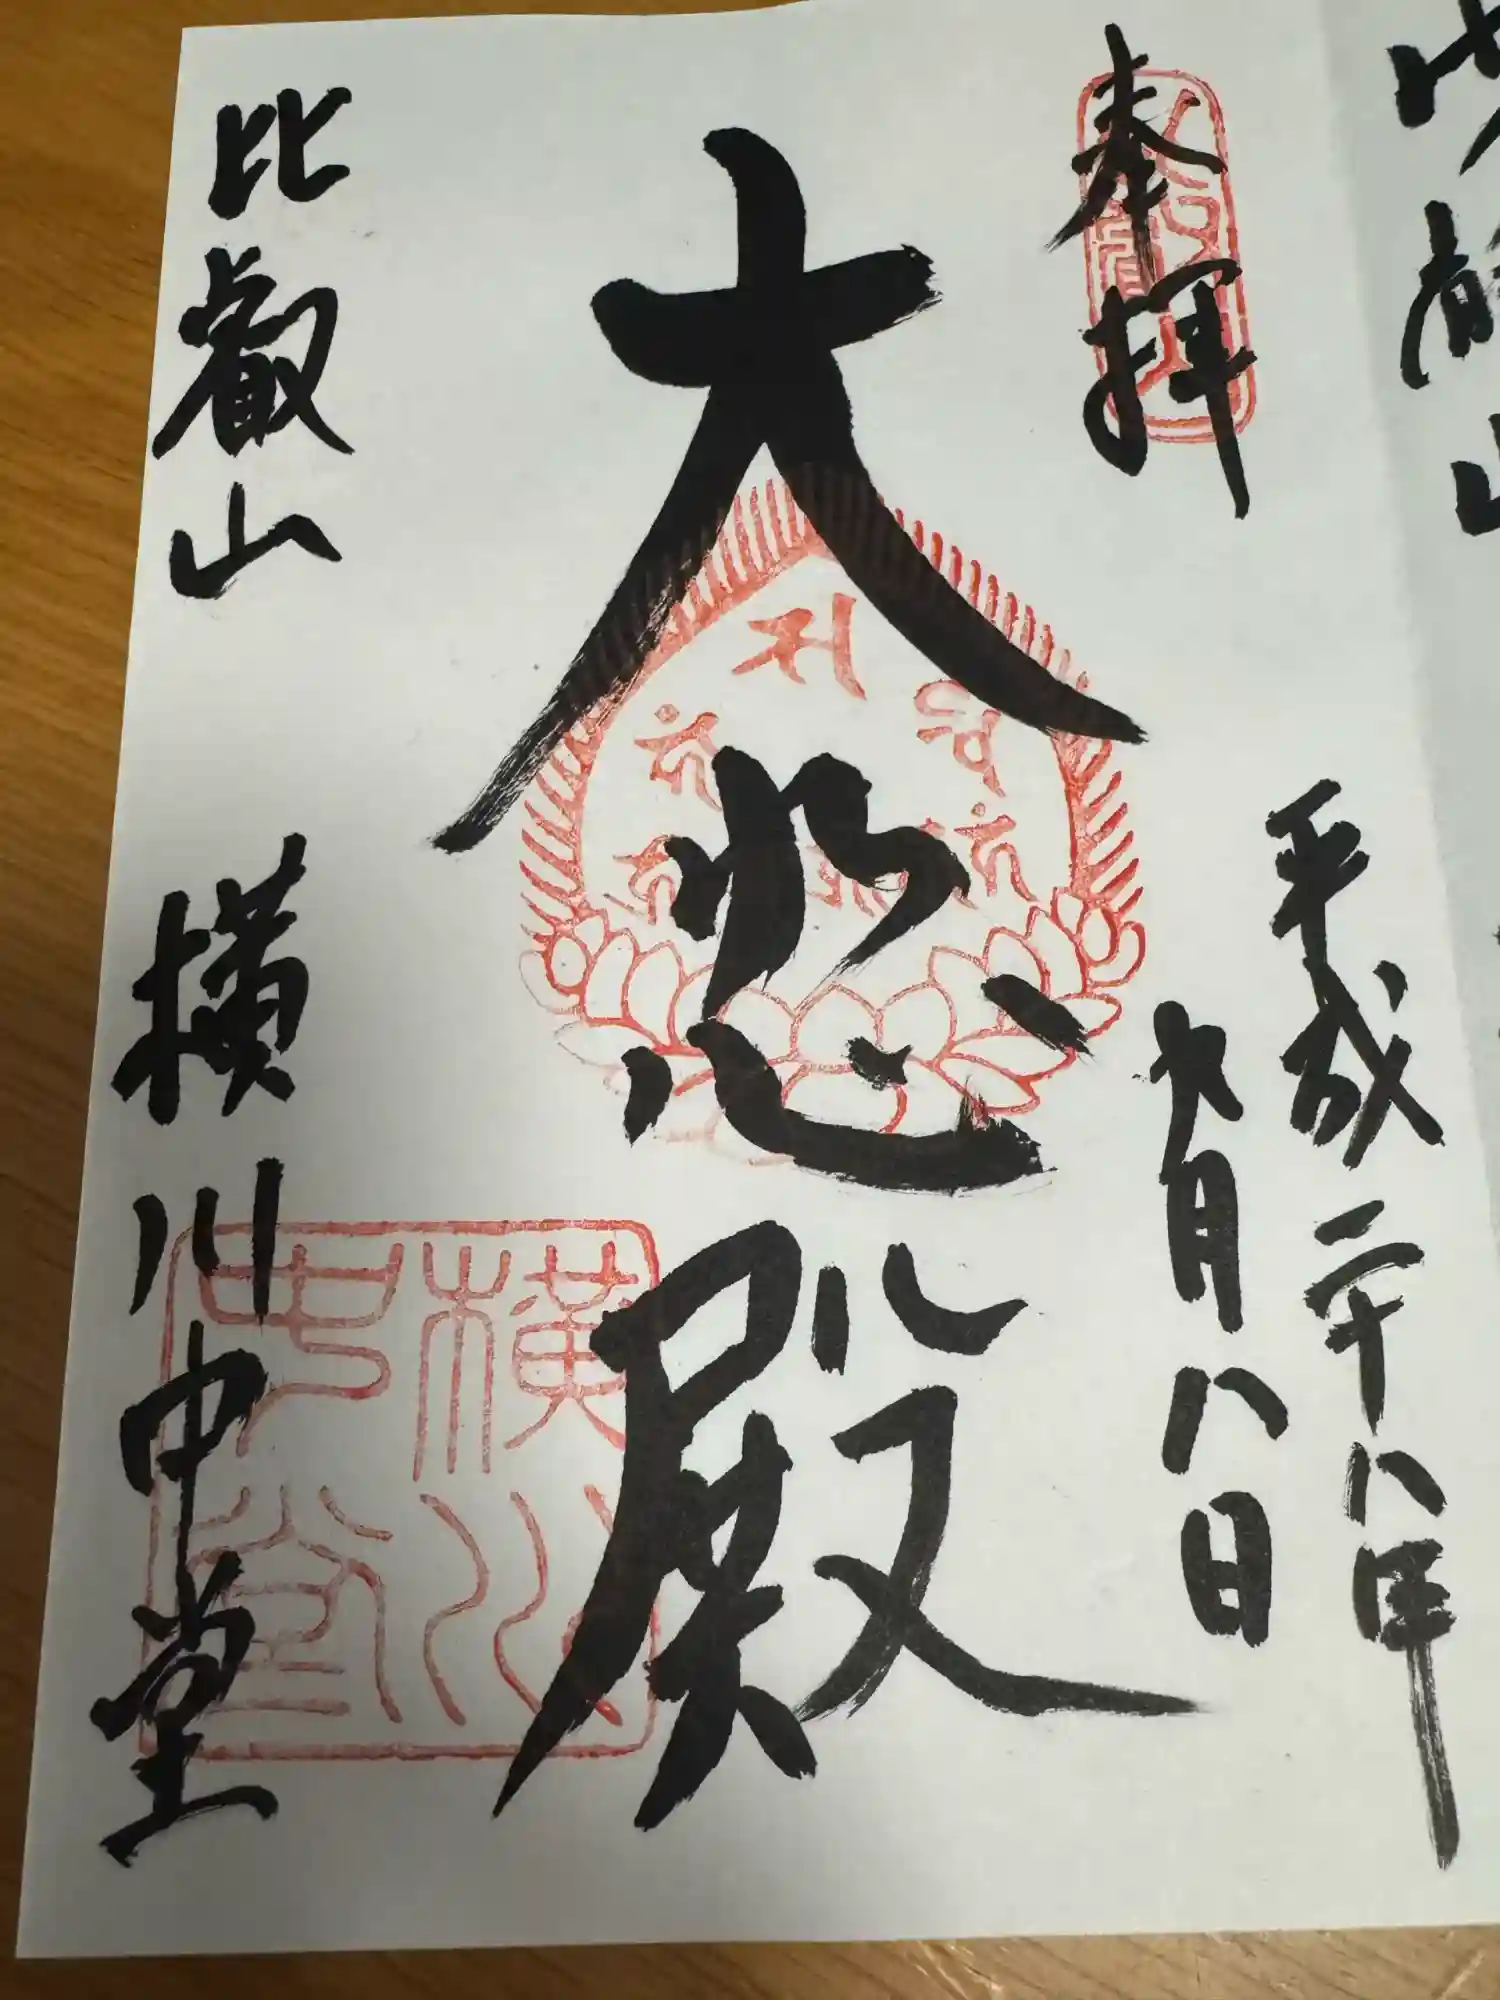 奉拝
平成二十八年
九月八日
大悲殿
比叡山 横川中堂
横川
中堂